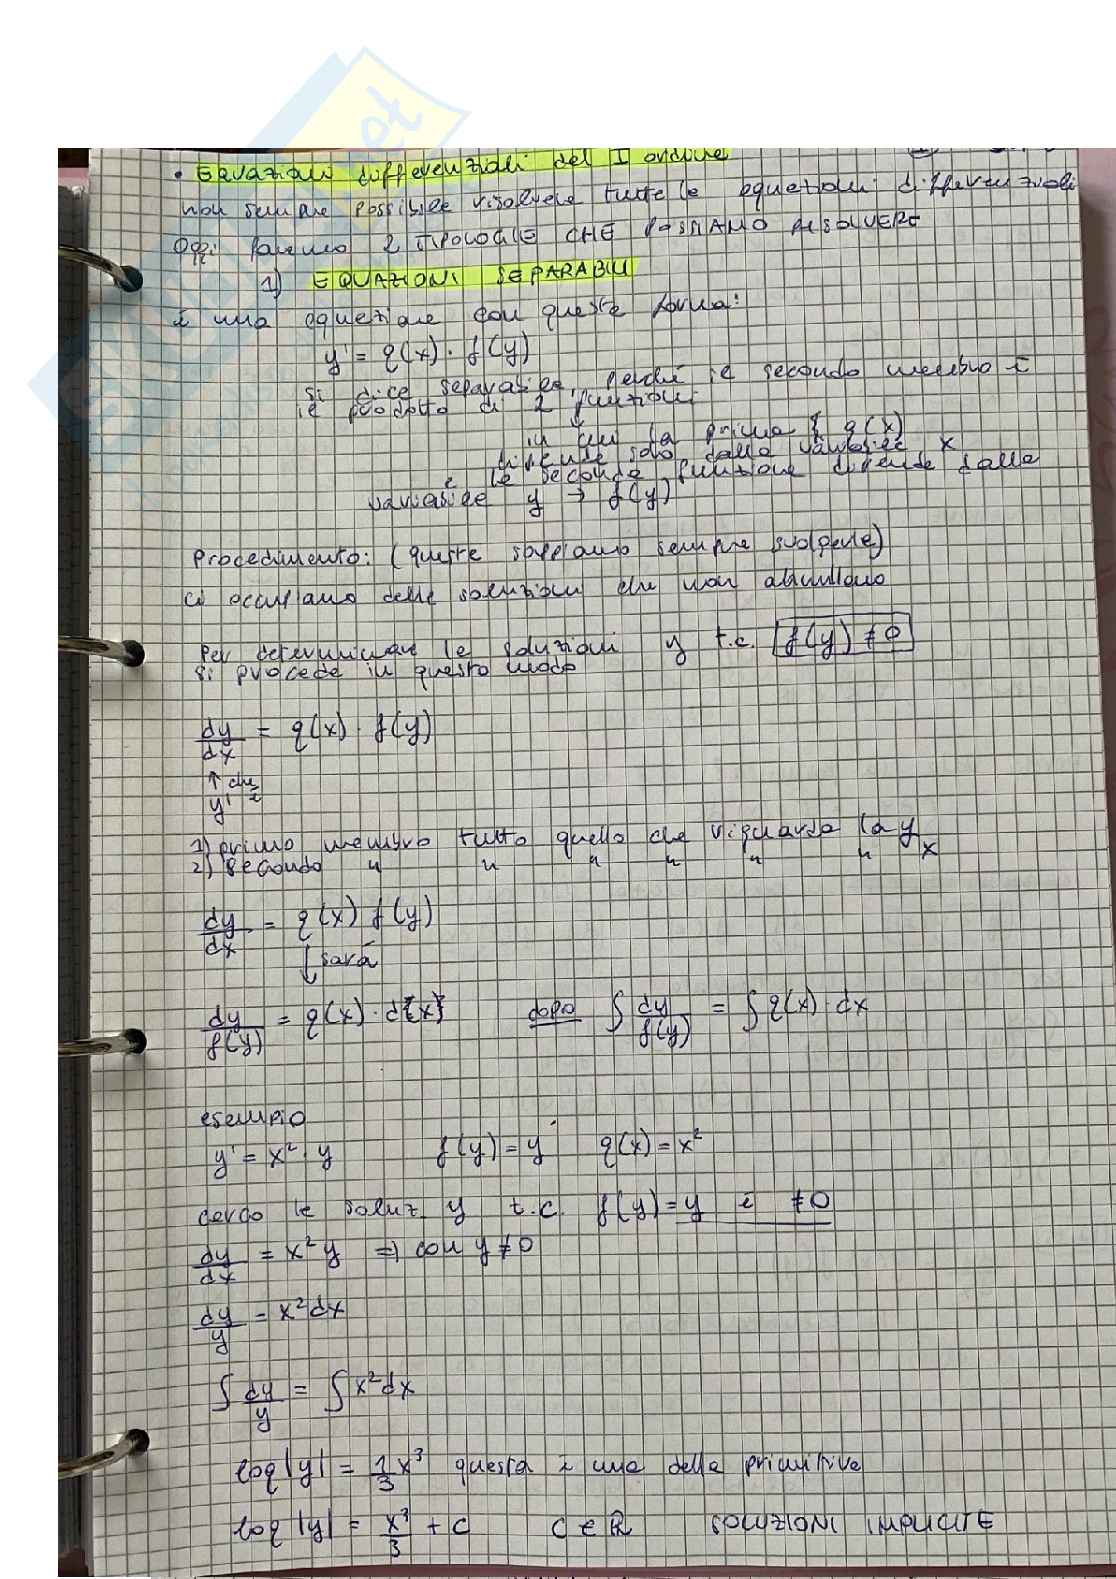 • Equazioni differenziali del I ordine
non sempre possibile risolvere tutte le equazioni differenziali
Oggi faremo 2 TIPOLOGIE CHE POSSIAMO RISOLVERE
1) EQUAZIONI SEPARABILI
È una equazione con questa forma:
y' = g(x) · f(y)
si dice separabile, perché il secondo membro è
il prodotto di 2 funzioni
↓
in cui la prima g(x)
dipende solo dalla variabile x
e la seconda funzione dipende dalla
variabile y → f(y)
Procedimento: (queste sappiamo sempre svolgerle)
ci occupiamo delle soluzioni che non annullano
Per determinare le soluzioni y t.c. f(y) ≠ 0
si procede in questo modo
dy/dx = g(x) · f(y)
↑ che è
y'
1) primo membro tutto quello che riguarda la y
2) secondo " " " " " " x
dy/dx = g(x) f(y)
↓ sarà
dy/f(y) = g(x) · d{x} dopo ∫ dy/f(y) = ∫ g(x) · dx
esempio
y' = x² · y f(y) = y g(x) = x²
cerco le soluz. y t.c. f(y) = y è ≠ 0
dy/dx = x² y ⇒ con y ≠ 0
dy/y = x² dx
∫ dy/y = ∫ x² dx
log |y| = 1/3 x³ questa è una della primitive
log |y| = x³/3 + c c ∈ R SOLUZIONI IMPLICITE